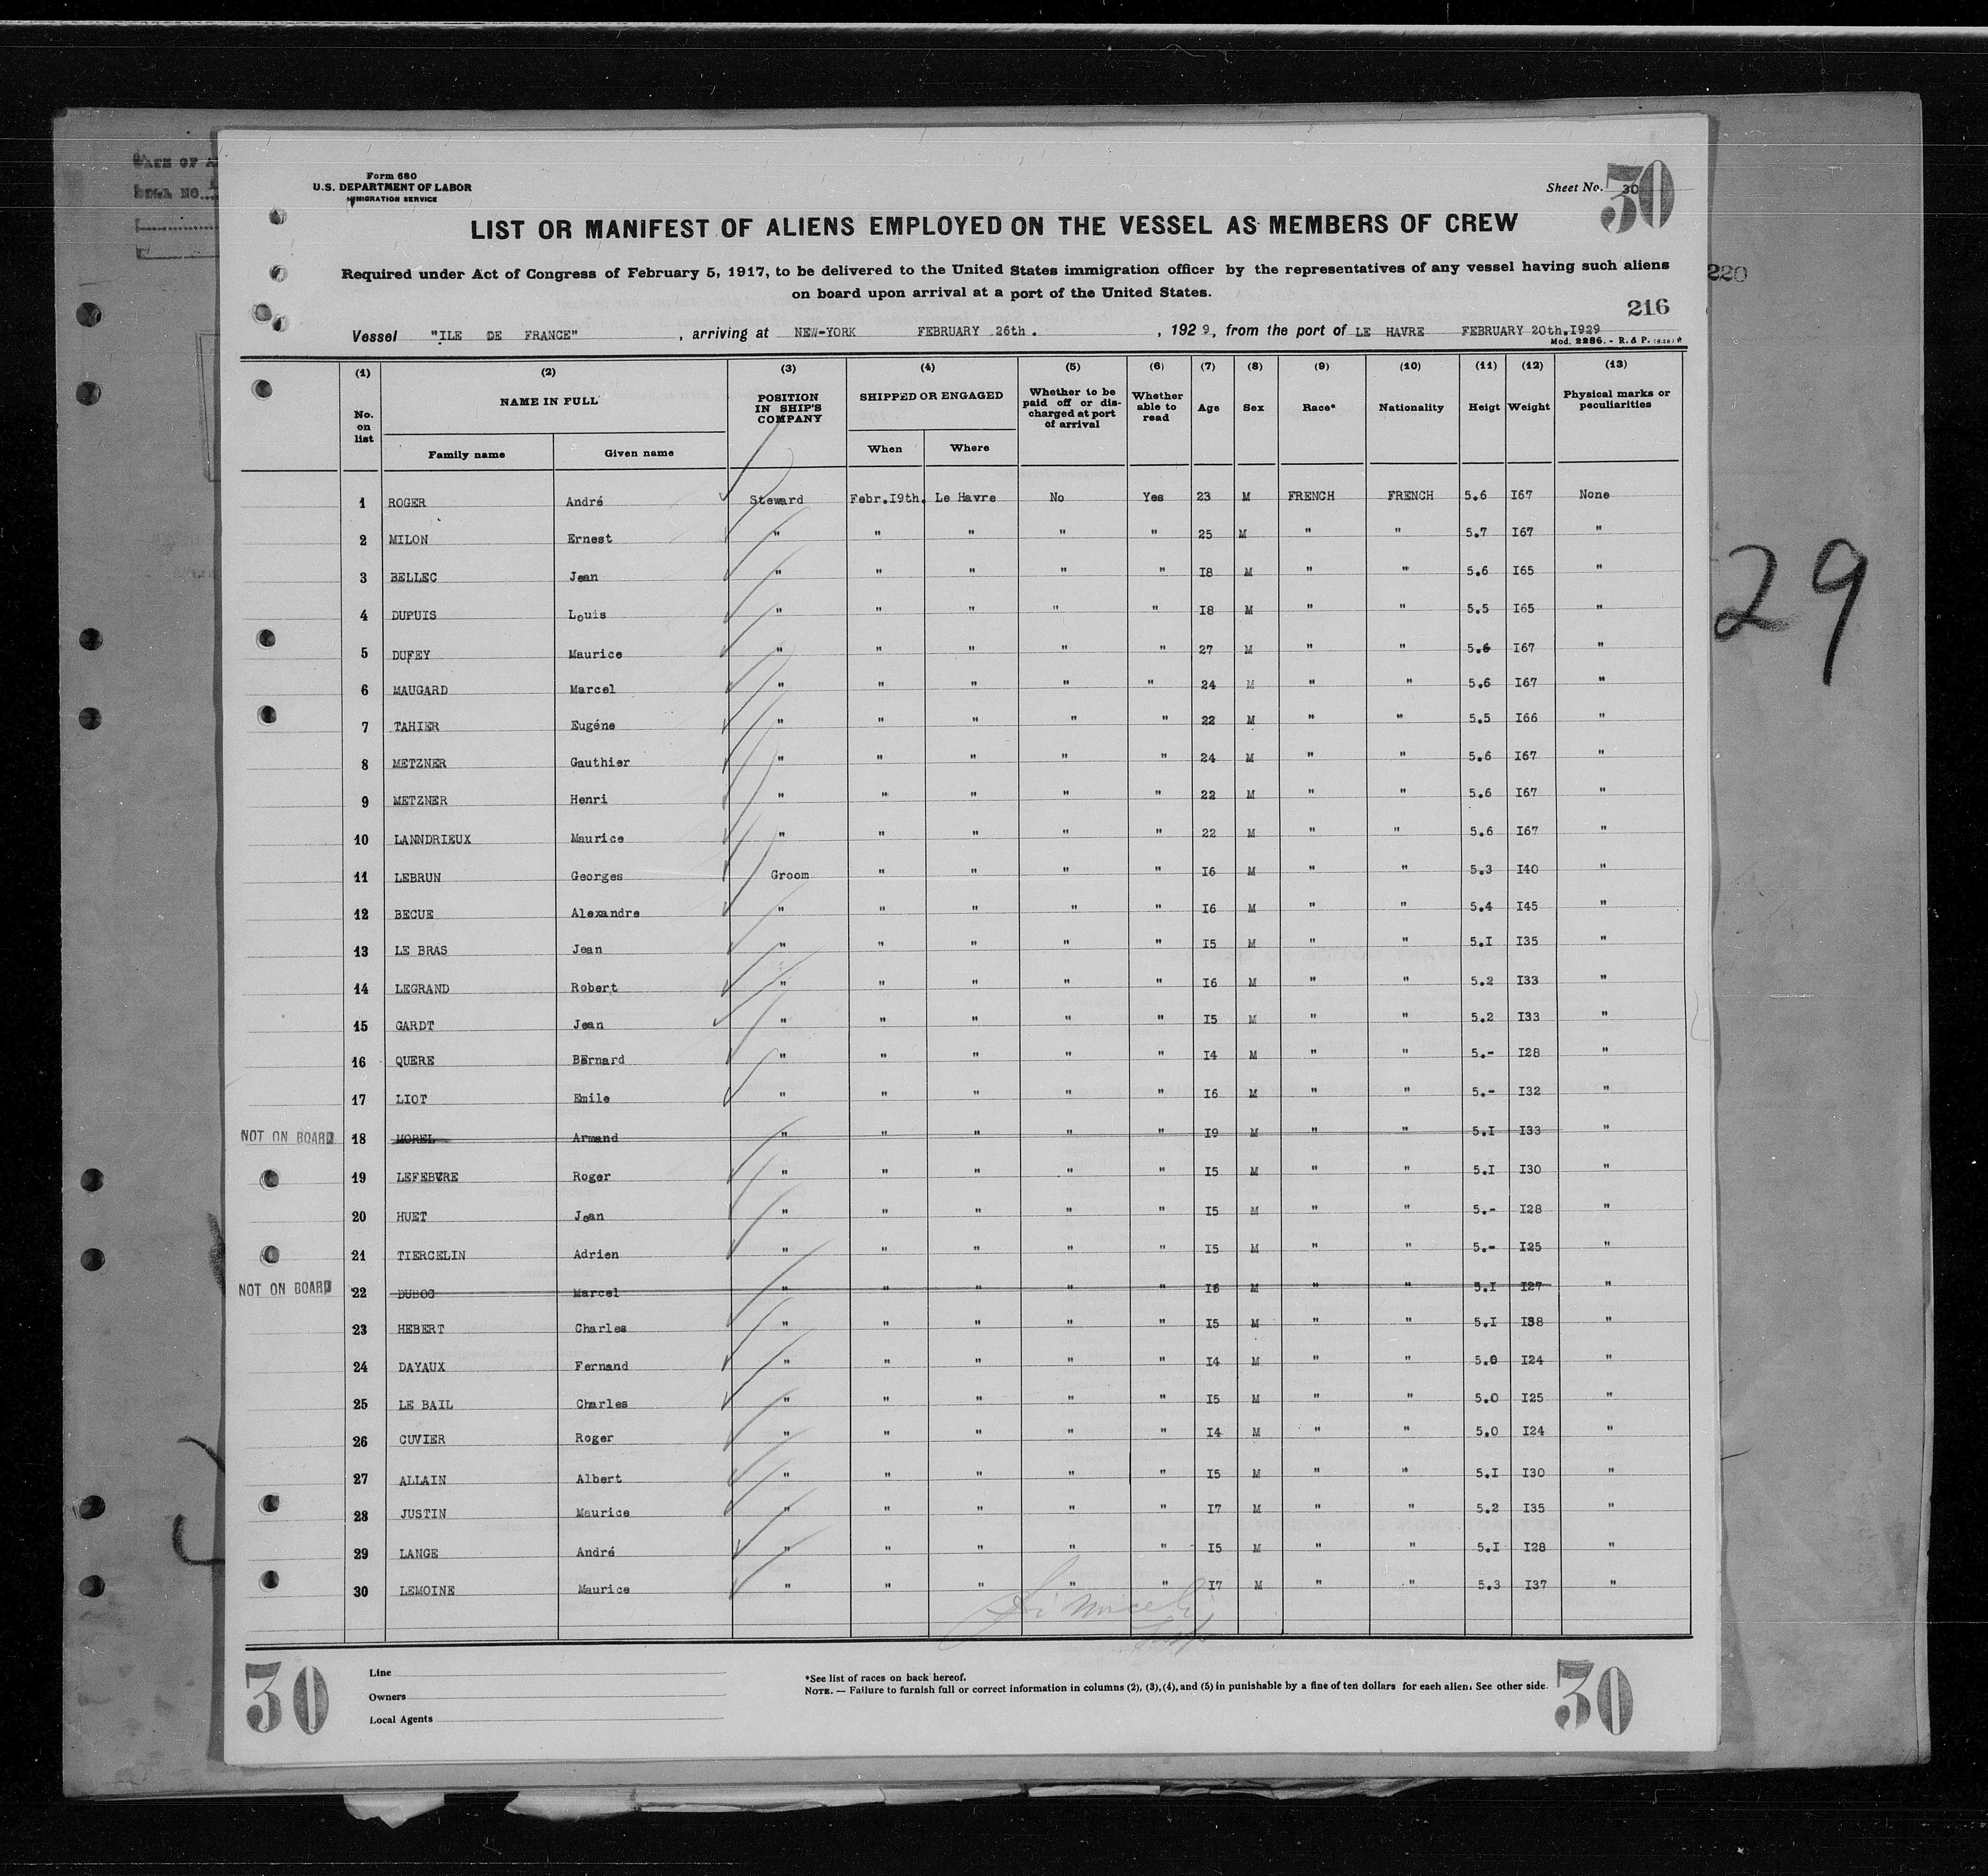 Form 680
U.S. DEPARTMENT OF LABOR
IMMIGRATION SERVICE
Sheet No. 30
30
LIST OR MANIFEST OF ALIENS EMPLOYED ON THE VESSEL AS MEMBERS OF CREW
Required under Act of Congress of February 5, 1917, to be delivered to the United States immigration officer by the representatives of any vessel having such aliens
on board upon arrival at a port of the United States.
220
216
Vessel "ILE DE FRANCE" , arriving at NEW-YORK FEBRUARY 26th. , 1929, from the port of LE HAVRE FEBRUARY 20th.I929
Mod. 2286. - R. & P.
(1) (2) (3) (4) (5) (6) (7) (8) (9) (10) (11) (12) (13)
No. on list NAME IN FULL POSITION IN SHIP'S COMPANY SHIPPED OR ENGAGED Whether to be paid off or discharged at port of arrival Whether able to read Age Sex Race* Nationality Heigt Weight Physical marks or peculiarities
Family name Given name When Where
1 ROGER André Steward Febr.I9th. Le Havre No Yes 23 M FRENCH FRENCH 5.6 I67 None
2 MILON Ernest " " " " " 25 M " " 5.7 I67 "
3 BELLEC Jean " " " " " I8 M " " 5.6 I65 "
4 DUPUIS Louis " " " " " I8 M " " 5.5 I65 "
5 DUFEY Maurice " " " " " 27 M " " 5.6 I67 "
6 MAUGARD Marcel " " " " " 24 M " " 5.6 I67 "
7 TAHIER Eugéne " " " " " 22 M " " 5.5 I66 "
8 METZNER Gauthier " " " " " 24 M " " 5.6 I67 "
9 METZNER Henri " " " " " 22 M " " 5.6 I67 "
10 LANNDRIEUX Maurice " " " " " 22 M " " 5.6 I67 "
11 LEBRUN Georges Groom " " " " I6 M " " 5.3 I40 "
12 BECUE Alexandre " " " " " I6 M " " 5.4 I45 "
13 LE BRAS Jean " " " " " I5 M " " 5.I I35 "
14 LEGRAND Robert " " " " " I6 M " " 5.2 I33 "
15 GARDT Jean " " " " " I5 M " " 5.2 I33 "
16 QUERE Bernard " " " " " I4 M " " 5.- I28 "
17 LIOT Emile " " " " " I6 M " " 5.- I32 "
NOT ON BOARD 18 MOREL Armand " " " " " I9 M " " 5.I I33 "
19 LEFEBVRE Roger " " " " " I5 M " " 5.I I30 "
20 HUET Jean " " " " " I5 M " " 5.- I28 "
21 TIERCELIN Adrien " " " " " I5 M " " 5.- I25 "
NOT ON BOARD 22 DUBOC Marcel " " " " " I6 M " " 5.I I27 "
23 HEBERT Charles " " " " " I5 M " " 5.I I38 "
24 DAYAUX Fernand " " " " " I4 M " " 5.0 I24 "
25 LE BAIL Charles " " " " " I5 M " " 5.0 I25 "
26 CUVIER Roger " " " " " I4 M " " 5.0 I24 "
27 ALLAIN Albert " " " " " I5 M " " 5.I I30 "
28 JUSTIN Maurice " " " " " I7 M " " 5.2 I35 "
29 LANGE André " " " " " I5 M " " 5.I I28 "
30 LEMOINE Maurice " " " " " I7 M " " 5.3 I37 "
29
30
Line
Owners
Local Agents
*See list of races on back hereof.
NOTE. — Failure to furnish full or correct information in columns (2), (3), (4), and (5) in punishable by a fine of ten dollars for each alien. See other side.
30